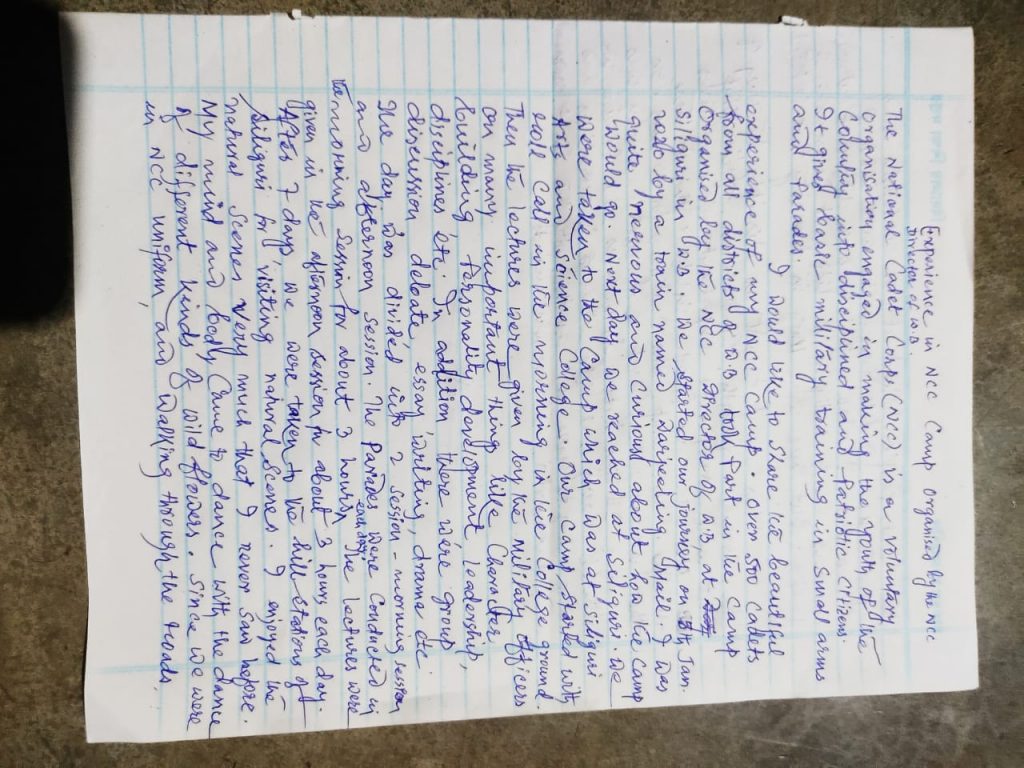 Experience in NCC Camp Organised by the NCC
Director of W.B.
The National Cadet Corps (NCC) is a voluntary
organisation engaged in making the youth of the
Country into disciplined and patriotic citizens.
It gives basic military training in small arms
and Parades.
I would like to share the beautiful
experience of my NCC camp. Over 500 cadets
from all districts of W.B took part in the camp
organised by the NCC Director of W.B, at
siliguri in W.B. We started our journey on 5th Jun.
2020 by a train named Darjeeling Mail. I was
quite nervous and curious about how the camp
would go. Next day we reached at Siliguri we
were taken to the Camp which was at siliguri
Arts and Science College. Our camp started with
roll call in the morning in the College ground.
Then the lectures were given by the Military officers
on many important things like Character
building, Personality development leadership,
disciplines etc. In addition there were group
discussion debate, essay writing, drama etc.
The day was divided into 2 session - morning session
and afternoon session. The Parades were Conducted in
the morning session for about 3 hours each day. The lectures were
given in the afternoon session for about 3 hours each day.
After 7 days we were taken to the hill stations of
Siliguri for visiting natural Scenes. I enjoyed the
natural Scenes very much that I never Saw before.
My mind and body Came to dance with the dance
of different kinds of wild flowers. Since we were
in NCC uniform and walking through the roads,